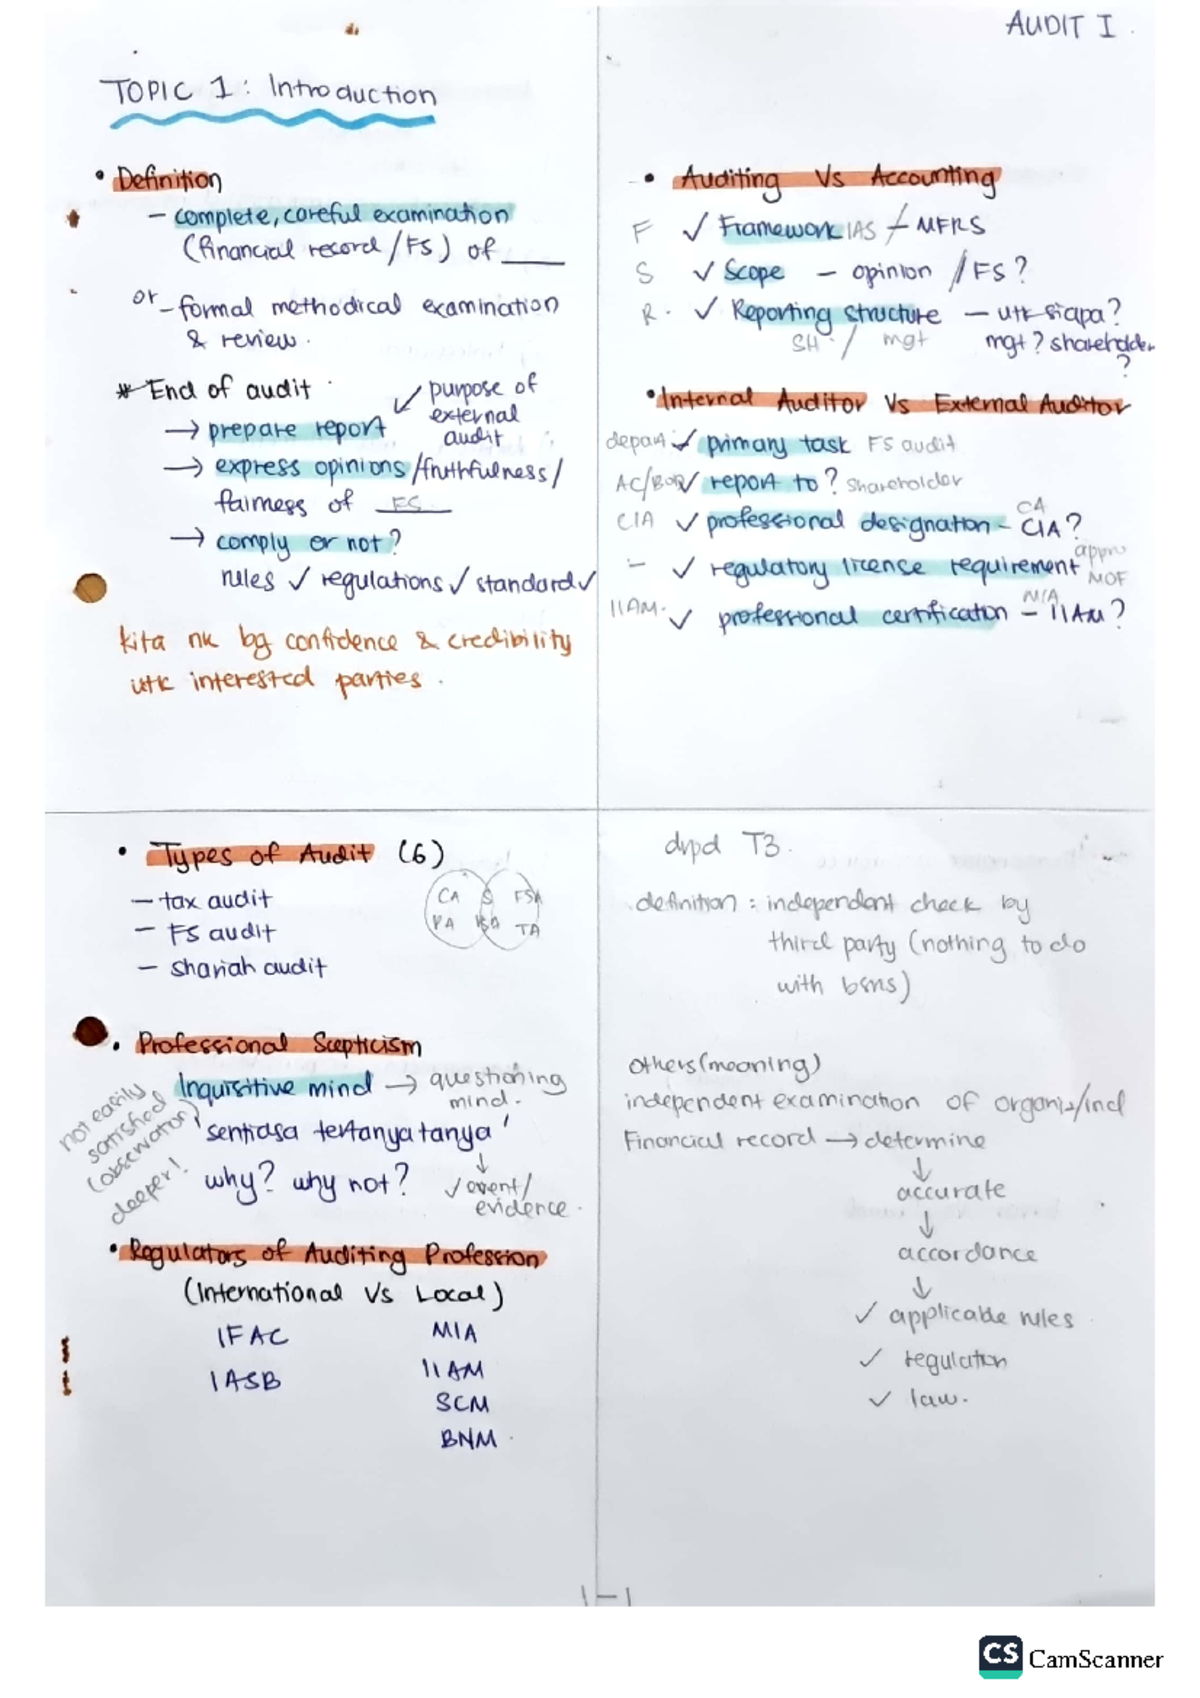 AUDIT I.
TOPIC 1: Introduction
• Definition
– complete, careful examination
(financial record / FS) of ____
or – formal methodical examination
& review.
* End of audit
→ prepare report
↙ purpose of
external
audit
→ express opinions / truthfulness /
fairness of FS
→ comply or not?
rules ✓ regulations ✓ standard ✓
kita nk bg confidence & credibility
utk interested parties.
• Auditing Vs Accounting
F ✓ Framework IAS / MFRS
S ✓ Scope – opinion / FS?
R. ✓ Reporting structure – utk siapa?
SH / mgt mgt? shareholder
?
• Internal Auditor Vs External Auditor
depart ✓ primary task FS audit
AC/BOD ✓ report to? Shareholder
CIA ✓ professional designation – CIA?
CA
– ✓ regulatory license requirement
appro
MOF
IIAM. ✓ professional certification – IIAM?
N/A
• Types of Audit (6)
– tax audit
– FS audit
– shariah audit
CA S FSA
PA TA
• Professional Scepticism
Inquisitive mind → questioning
mind.
'sentiasa tertanya tanya'
↓
why? why not? ✓ event/
evidence.
not easily
satisfied
(observation)
deeper!
• Regulators of Auditing Profession
(International Vs Local)
IFAC MIA
IASB IIAM
SCM
BNM.
drpd T3.
definition : independent check by
third party (nothing to do
with bsns)
others (meaning)
independent examination of organiz/incl
Financial record → determine
↓
accurate
↓
accordance
↓
✓ applicable rules
✓ regulation
✓ law.
1-1
CS CamScanner